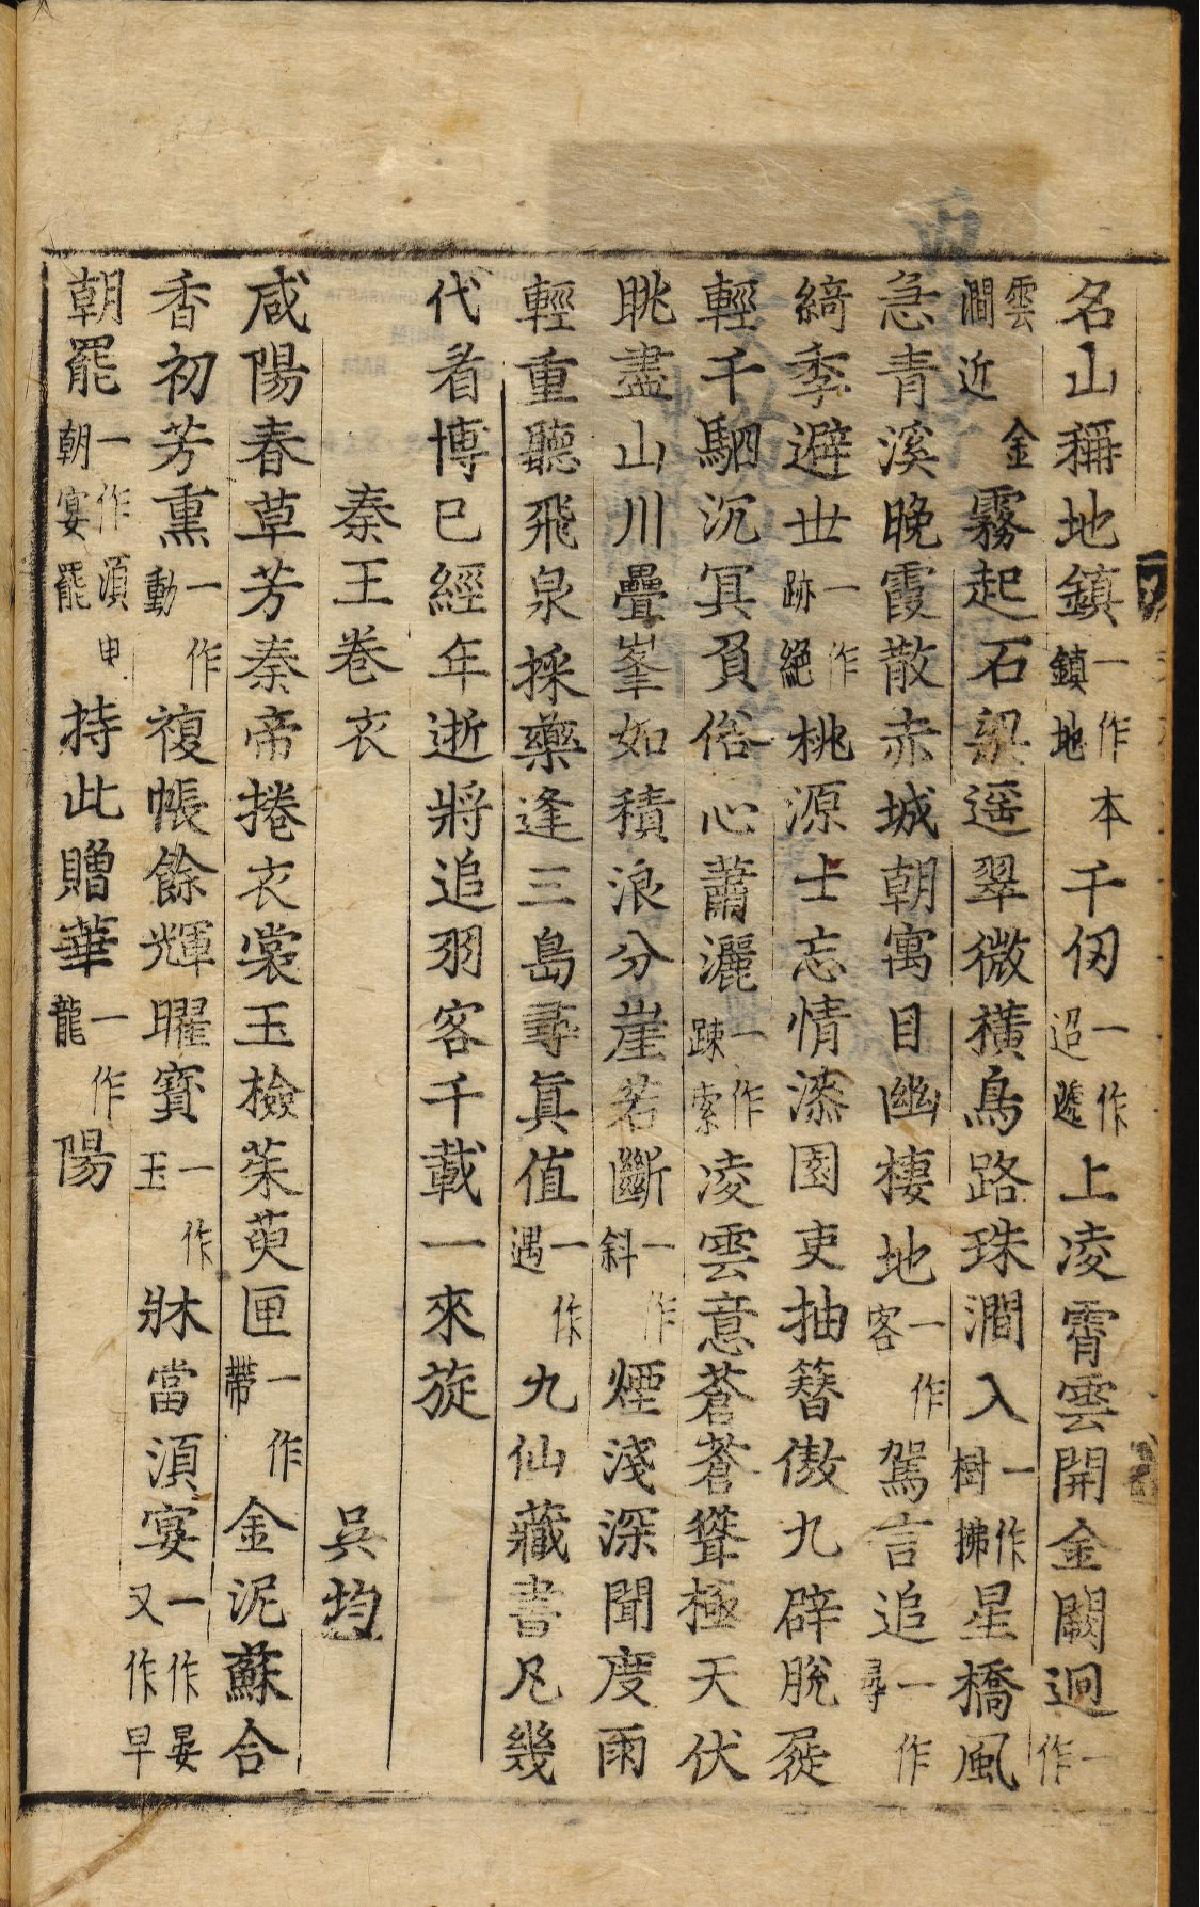 名山稱地鎮一作鎮地本千仞一作迢遞上凌霄雲開金闕迥一作
雲澗近金霧起石梁遥翠微橫鳥路珠澗入一作樹拂星橋風
急青溪晚霞散赤城朝寓目幽棲地一作客駕言追一作尋
綺季避世一作跡絕桃源士忘情漆園吏抽簪傲九辟脫屣
輕千駟沉冥負俗心蕭灑一作踈索凌雲意蒼蒼聳極天伏
眺盡山川疊峯如積浪分崖若斷一作斜煙淺深聞度雨
輕重聽飛泉採藥逢三島尋真值一作遇九仙藏書凡幾
代看博已經年逝將追羽客千載一來旋
秦王卷衣 吳均
咸陽春草芳秦帝捲衣裳玉檢茱萸匣一作帶金泥蘇合
香初芳熏一作動複帳餘輝曜寶一作玉牀當須宴一作晏又作早
朝罷一作須申朝宴罷持此贈華一作龍陽